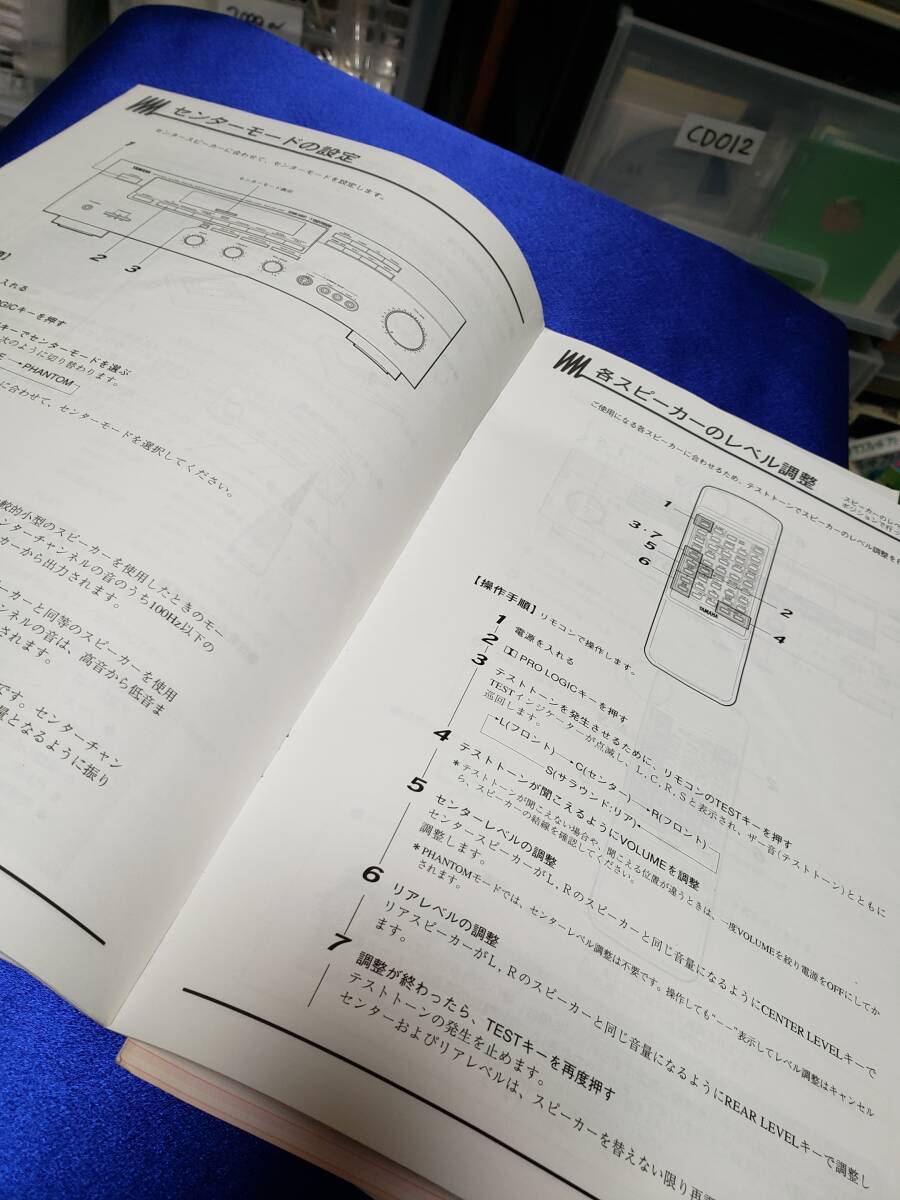 2,000~
CD012
センターモードの設定
センタースピーカーに合わせて、センターモードを設定します。
センターモード表示
YAMAHA
1
2
3
入れる
OGICキーを押す
キーでセンターモードを選ぶ
次のように切り替わります。
PHANTOM
に合わせて、センターモードを選択してください。
較的小型のスピーカーを使用したときのモー
ンターチャンネルの音のうち100Hz以下の
カーから出力されます。
ーカーと同等のスピーカーを使用
ンネルの音は、高音から低音ま
されます。
です。センターチャン
量となるように振り
各スピーカーのレベル調整
ご使用になる各スピーカーに合わせるため、テストトーンでスピーカーのレベル調整を行
スピーカーのレベ
ポジションで行っ
1
3・7
5
6
2
4
YAMAHA
【操作手順】リモコンで操作します。
1 電源を入れる
2 PRO LOGICキーを押す
3 テストトーンを発生させるために、リモコンのTESTキーを押す
TESTインジケーターが点滅し、L, C, R, Sと表示され、ザー音(テストトーン)とともに
巡回します。
L(フロント)→C(センター)→R(フロント)
S(サラウンド:リア)
4 テストトーンが聞こえるようにVOLUMEを調整
*テストトーンが聞こえない場合や、聞こえる位置が違うときは、一度VOLUMEを絞り電源をOFFにしてか
ら、スピーカーの結線を確認してください。
5 センターレベルの調整
センタースピーカーがL, Rのスピーカーと同じ音量になるようにCENTER LEVELキーで
調整します。
*PHANTOMモードでは、センターレベル調整は不要です。操作しても"－－"表示してレベル調整はキャンセル
されます。
6 リアレベルの調整
リアスピーカーがL, Rのスピーカーと同じ音量になるようにREAR LEVELキーで調整し
ます。
7 調整が終わったら、TESTキーを再度押す
テストトーンの発生を止めます。
センターおよびリアレベルは、スピーカーを替えない限り再調